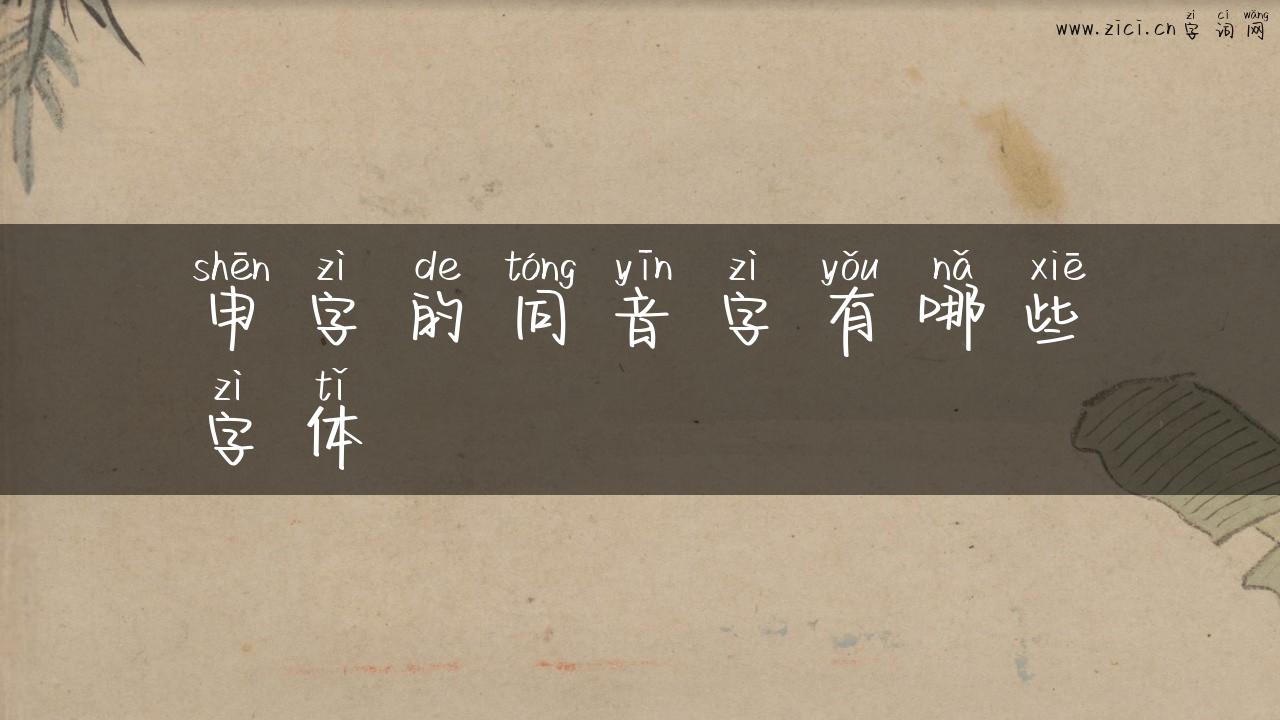 zì cí wǎng
www.zici.cn 字词网
shēn zì de tóng yīn zì yǒu nǎ xiē
申字的同音字有哪些
zì tǐ
字体